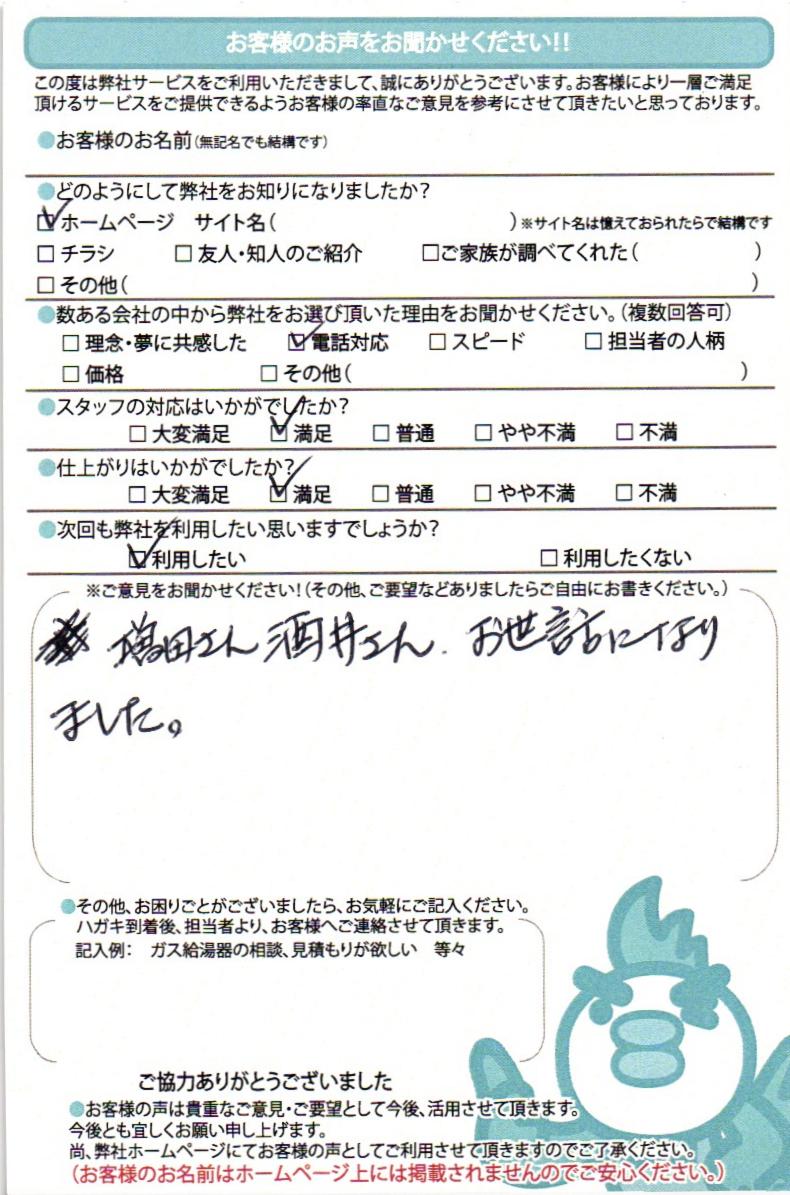 お客様のお声をお聞かせください!!
この度は弊社サービスをご利用いただきまして、誠にありがとうございます。お客様により一層ご満足
頂けるサービスをご提供できるようお客様の率直なご意見を参考にさせて頂きたいと思っております。
●お客様のお名前(無記名でも結構です)
●どのようにして弊社をお知りになりましたか?
☑ホームページ サイト名( )※サイト名は憶えておられたらで結構です
□チラシ □友人・知人のご紹介 □ご家族が調べてくれた( )
□その他( )
●数ある会社の中から弊社をお選び頂いた理由をお聞かせください。(複数回答可)
□理念・夢に共感した ☑電話対応 □スピード □担当者の人柄
□価格 □その他( )
●スタッフの対応はいかがでしたか?
□大変満足 ☑満足 □普通 □やや不満 □不満
●仕上がりはいかがでしたか?
□大変満足 ☑満足 □普通 □やや不満 □不満
●次回も弊社を利用したい思いますでしょうか?
☑利用したい □利用したくない
※ご意見をお聞かせください!(その他、ご要望などありましたらご自由にお書きください。)
増田さん 酒井さん、お世話になり
ました。
●その他、お困りごとがございましたら、お気軽にご記入ください。
ハガキ到着後、担当者より、お客様へご連絡させて頂きます。
記入例: ガス給湯器の相談、見積もりが欲しい 等々
ご協力ありがとうございました
●お客様の声は貴重なご意見・ご要望として今後、活用させて頂きます。
今後とも宜しくお願い申し上げます。
尚、弊社ホームページにてお客様の声としてご利用させて頂きますのでご了承ください。
(お客様のお名前はホームページ上には掲載されませんのでご安心ください。)